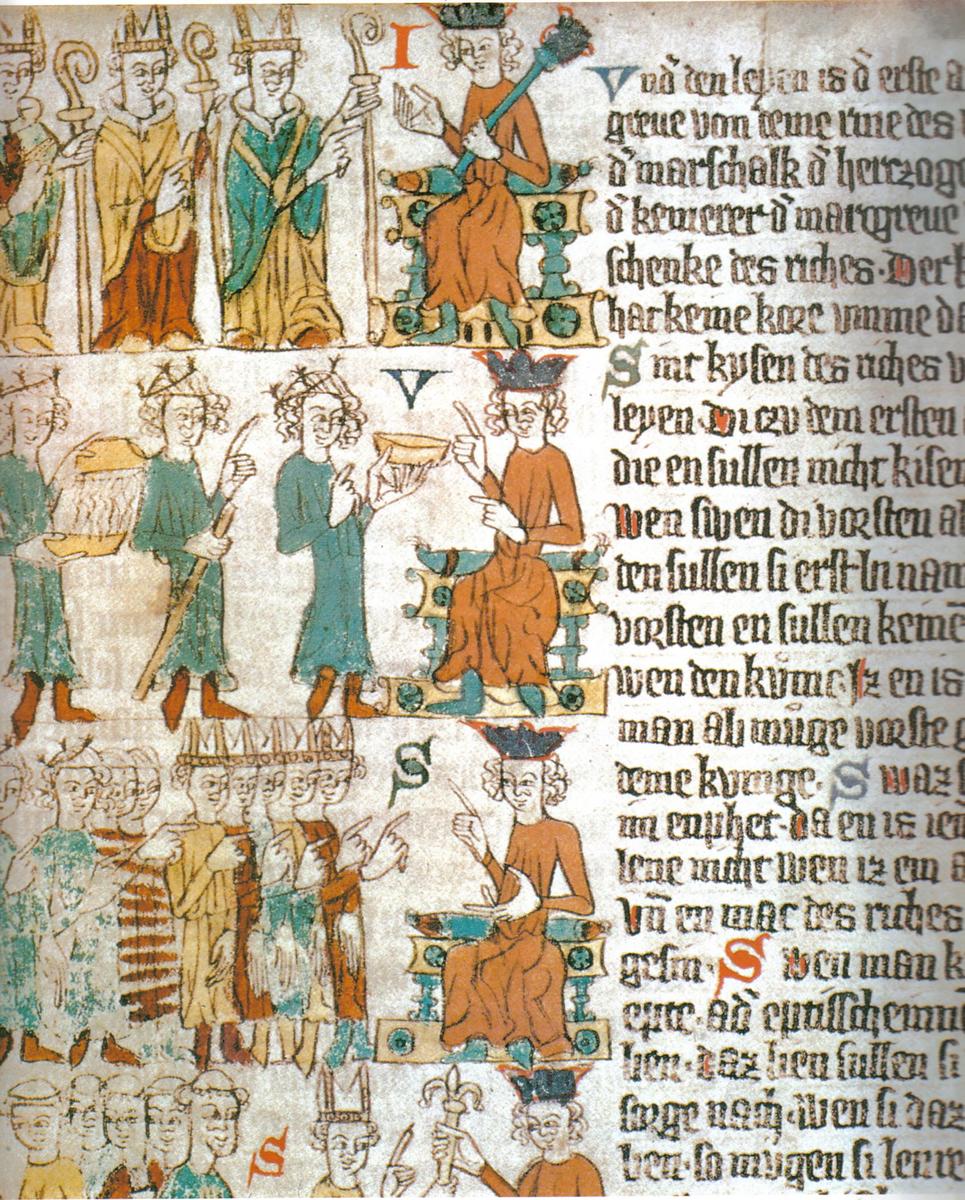 I
Vnd̄ den leyen is d̄ erste a
greue von deme rine des
d̄ marschalk d̄ herczoge
d̄ kemerer d̄ marcgreue
schenke des riches. Der k
har keine kore vmme da
V
Sint kysen des riches v
leyen. Di czu dem ersten
die en sullen nicht kisen
wen swen di vorsten al
den sullen si erst In nam
vorsten en sullen keine
wen den kunic. Iz en is
S
man ab müge vorste g
deme kunige. Swaz
im enphet. da en is ien
lene nicht wen iz ein a
Vn̄ en mac des riches
gesin. Swen man k
epte. ad̄ eptisschennē
lien. daz lien sullen si
forge nach. wen si daz
S
ben. so mugen si lenre